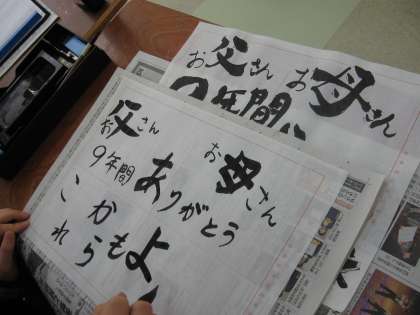 お父さん
お母さん
9年間
ありがとう
これからもよ
お父さん
お母さん
年間